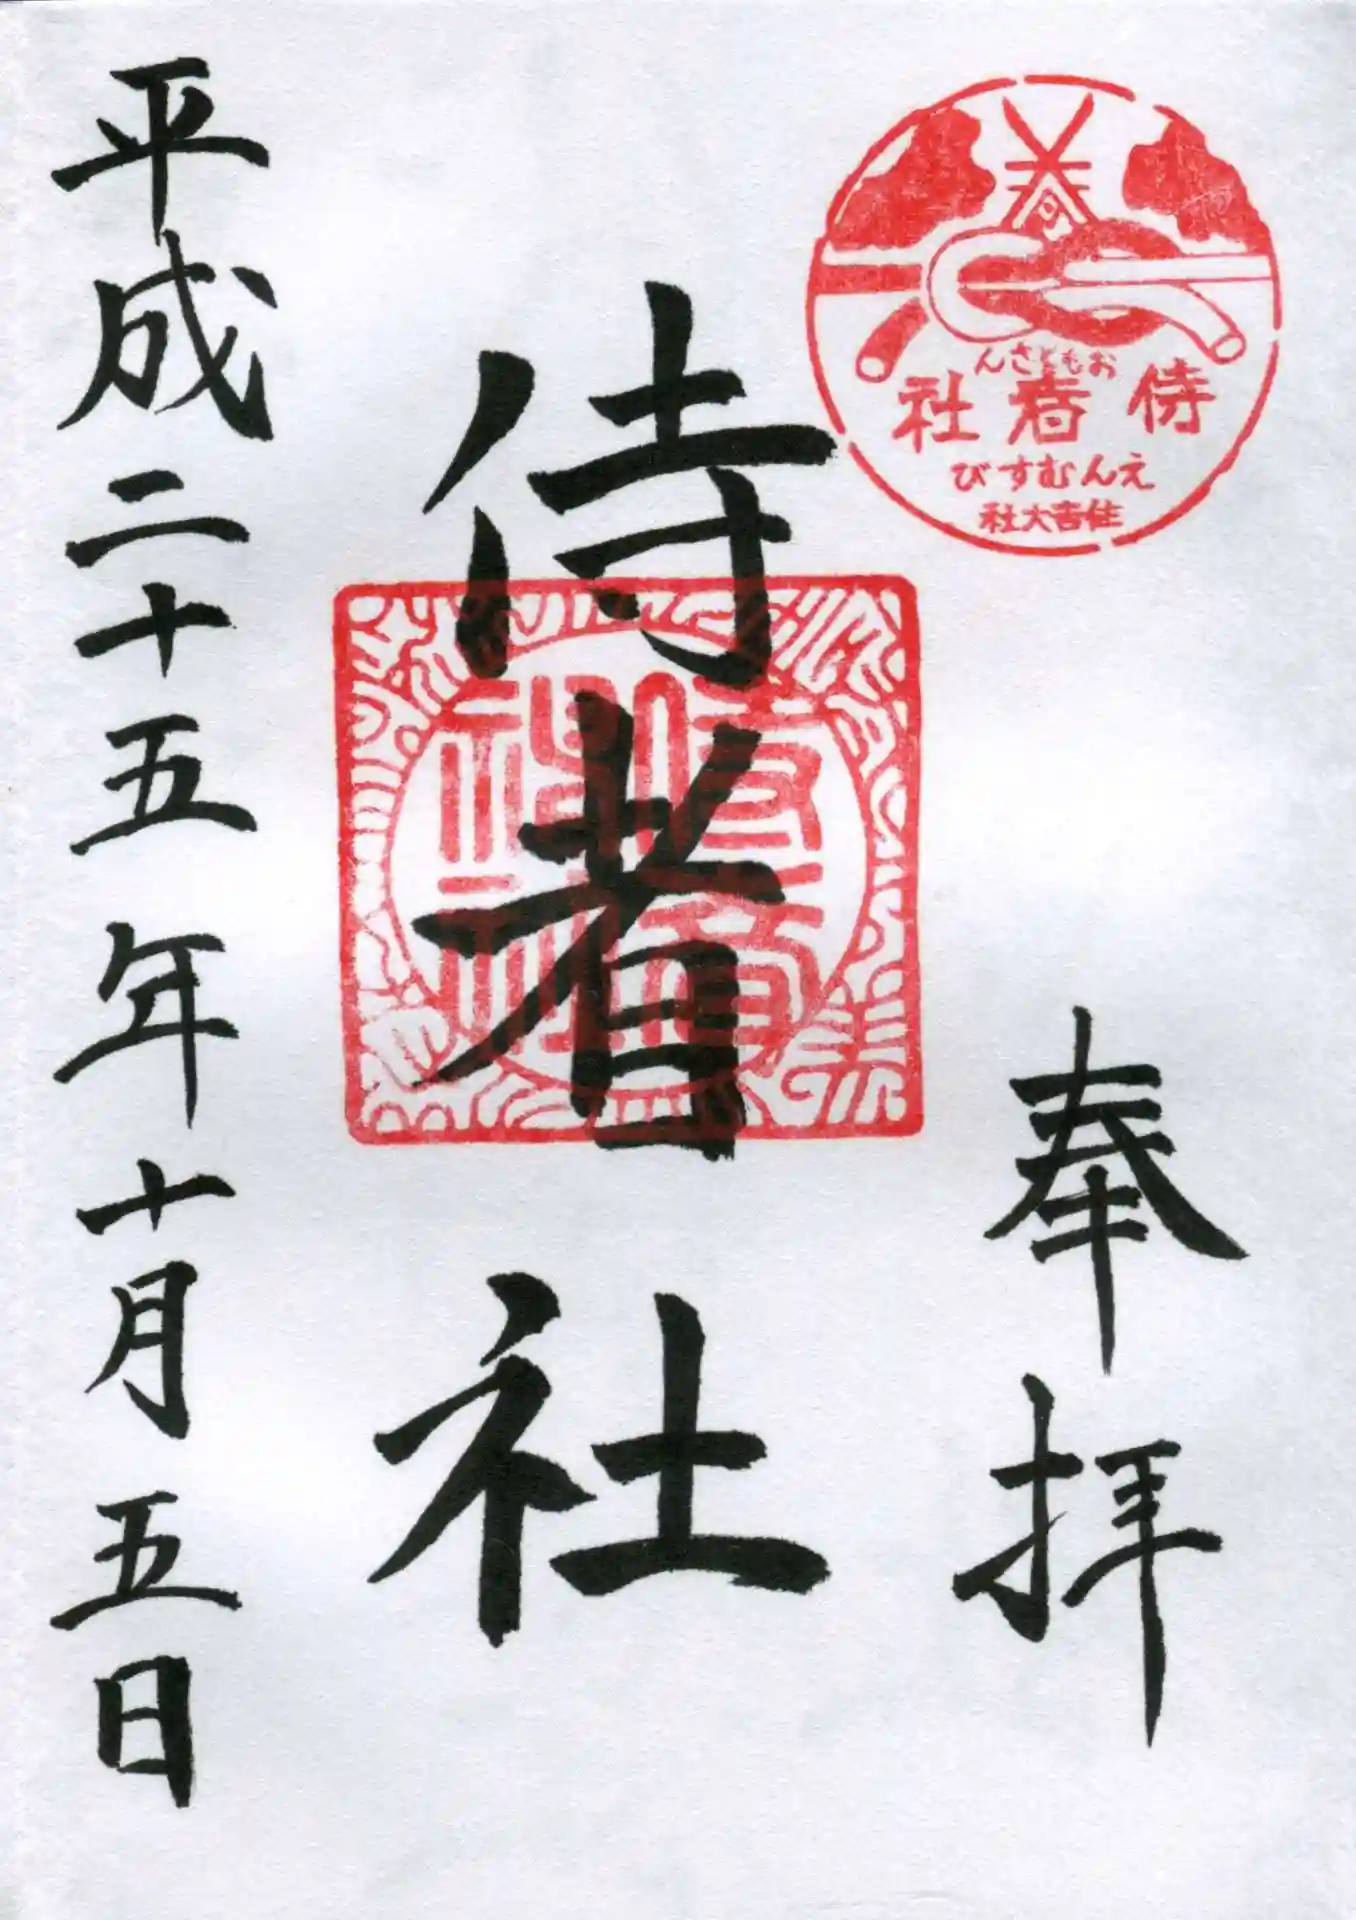 おもとさん
侍者社
えんむすび
住吉大社
奉拝
侍者社
平成二十五年十月五日